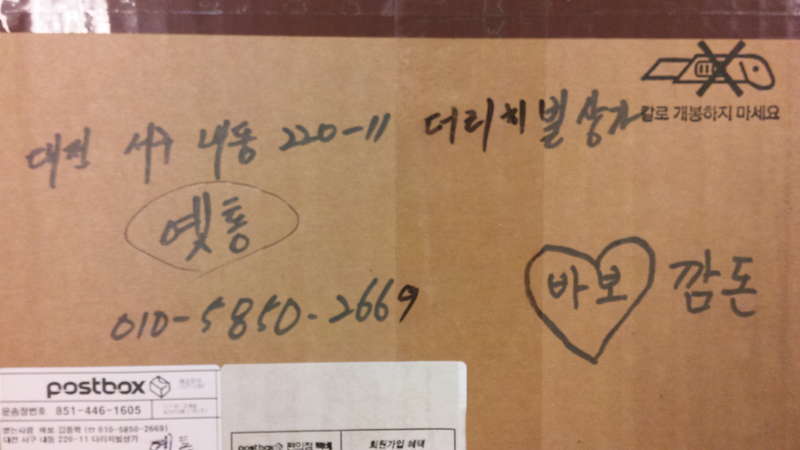 칼로 개봉하지 마세요
대전 서구 내동 220-11 더리치빌상가
옛통
010-5850-2669
바보 깜돈
postbox
운송장번호 851-446-1605
받는사람 바보 깜돈 (010-5850-2669)
대전 서구 내동 220-11 더리치빌상가
postbox 편의점 택배
회원가입 혜택